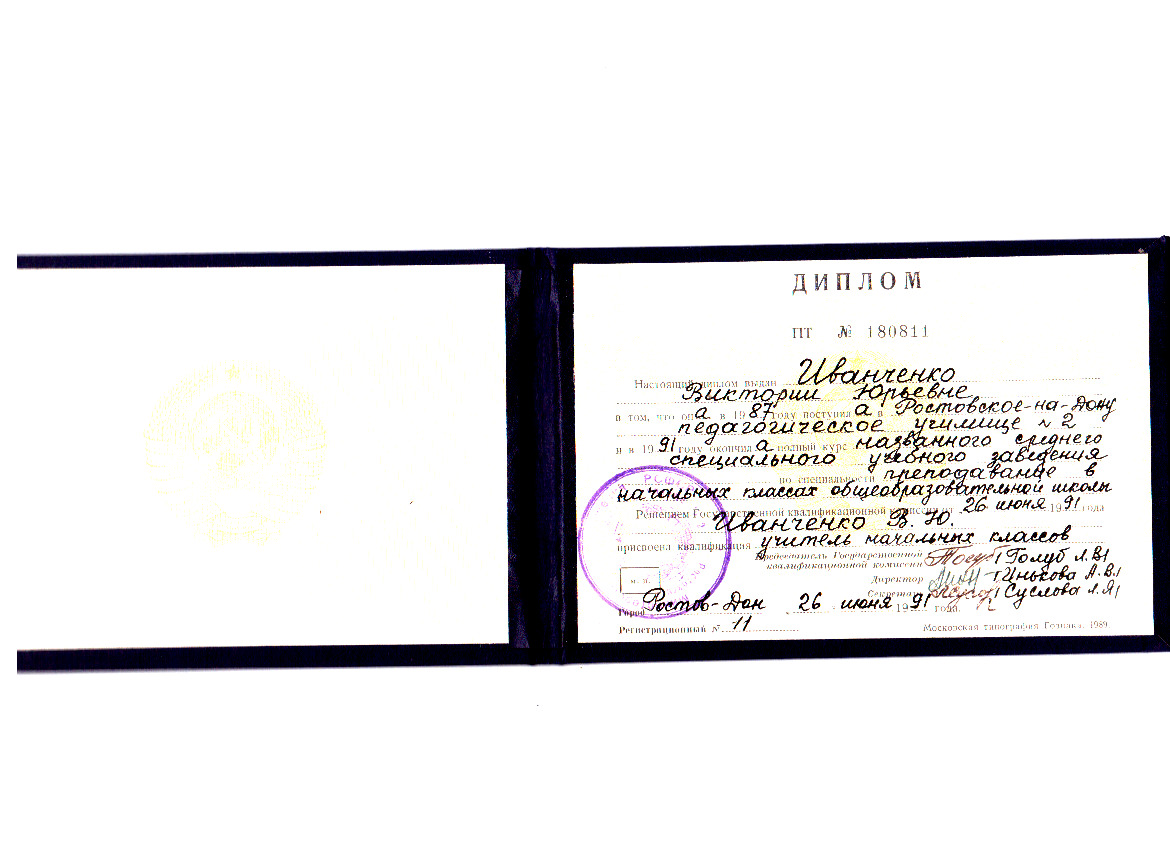 ДИПЛОМ
ПТ № 180811
Настоящий диплом выдан Иванченко
Виктории Юрьевне
в том, что она в 1987 году поступила в Ростовское-на-Дону
педагогическое училище № 2
и в 1991 году окончила полный курс названного среднего
специального учебного заведения
по специальности преподавание в
начальных классах общеобразовательной школы
Решением Государственной квалификационной комиссии от 26 июня 1991 года
Иванченко В. Ю.
присвоена квалификация учитель начальных классов
Председатель Государственной
квалификационной комиссии (Голуб Л.В)
Директор (Инькова А.В.)
Секретарь (Суслова Л.Я)
м. п.
Город Ростов-Дон 26 июня 1991 года.
Регистрационный № 11
Московская типография Гознака. 1989.